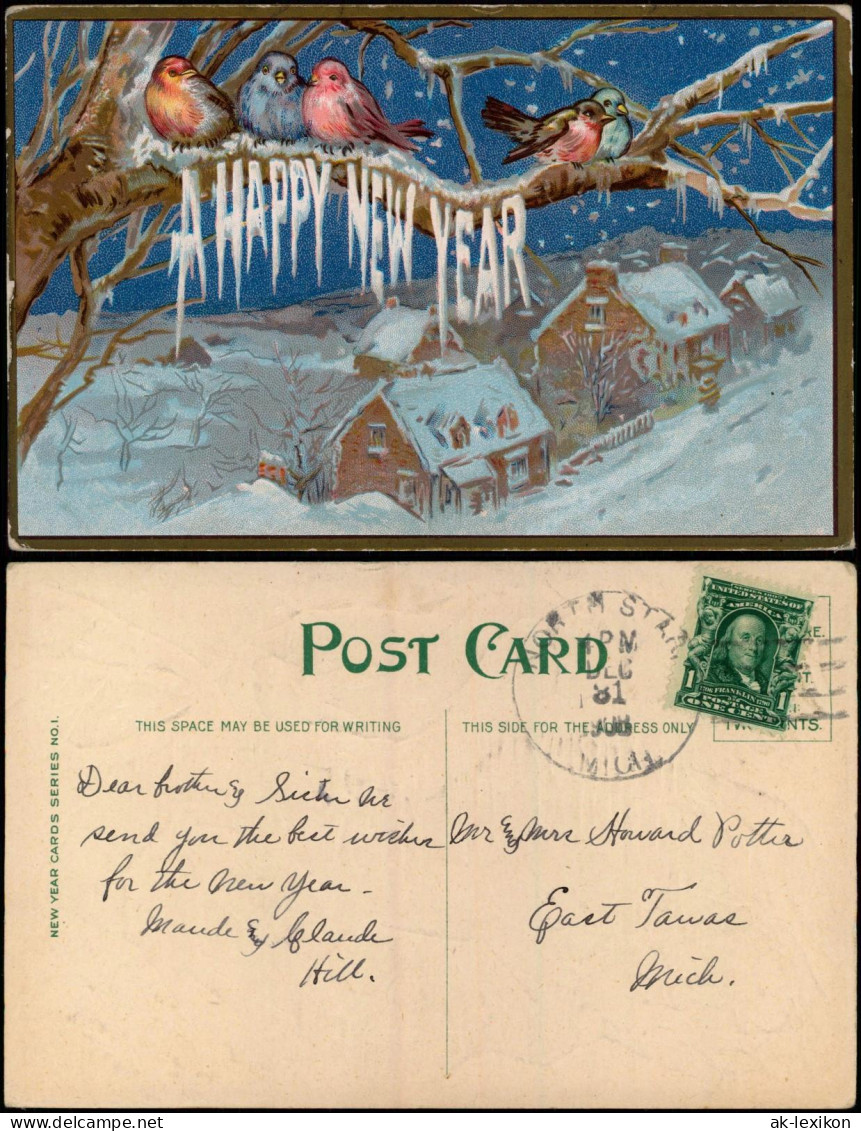 A HAPPY NEW YEAR
POST CARD
THIS SPACE MAY BE USED FOR WRITING
THIS SIDE FOR THE ADDRESS ONLY
NEW YEAR CARDS SERIES NO. 1.
NORTH STAR,
PM
DEC
31
MICH.
UNITED STATES OF
AMERICA
1
1706 FRANKLIN 1790
1
POSTAGE
ONE CENT
CENTS.
Dear brother & Sister We
send you the best wishes
for the New Year -
Maude & Claude
Hill.
Mr & Mrs Howard Potter
East Tawas
Mich.
ak-lexikon